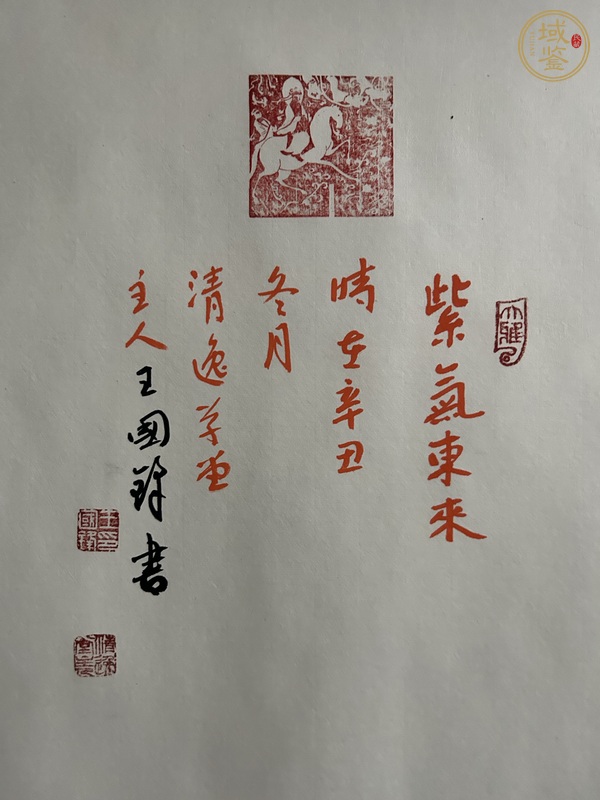 域鉴
紫氣東來
時在辛丑
冬月
清逸草堂
主人王國鋒書